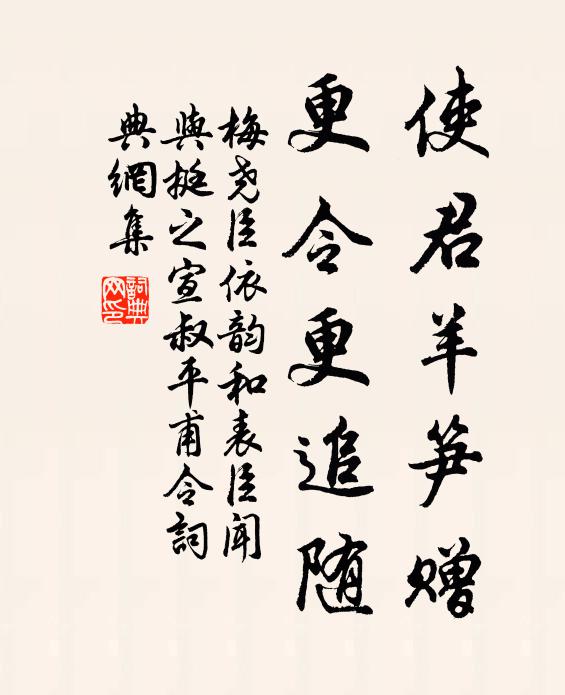 使君羊笋赠
更令更追随
梅尧臣依韵和表臣闻
與挺之宣叔平甫令詞
典網集
詞典网印